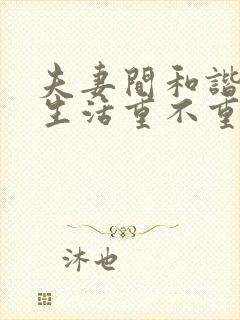 夫妻間和諧
生活重不重
沐也